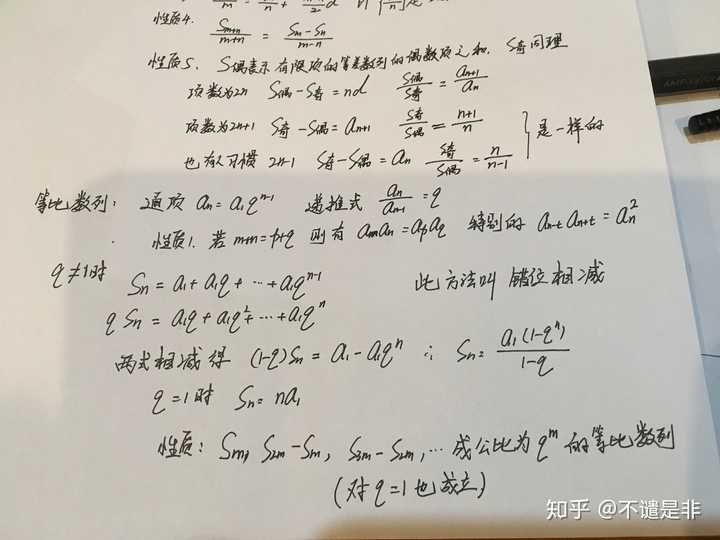 性质4. S_{m+n}/(m+n) = (S_m-S_n)/(m-n)
性质5. S偶表示有限项的等差数列的偶数项之和, S奇同理
项数为2n S偶-S奇=nd S偶/S奇=a_{n+1}/a_n
项数为2n+1 S奇-S偶=a_{n+1} S奇/S偶=(n+1)/n
是一样的
也有人习惯 2n-1 S奇-S偶=a_n S奇/S偶=n/(n-1)
等比数列: 通项 a_n=a_1q^{n-1} 递推式 a_n/a_{n-1}=q
性质1. 若m+n=p+q 则有 a_ma_n=a_pa_q 特别的 a_{n-t}a_{n+t}=a_n^2
q≠1时 S_n=a_1+a_1q+…+a_1q^{n-1} 此方法叫 错位相减
qS_n=a_1q+a_1q^2+…+a_1q^n
两式相减得 (1-q)S_n=a_1-a_1q^n ∴ S_n=a_1(1-q^n)/(1-q)
q=1时 S_n=na_1
性质: S_m, S_{2m}-S_m, S_{3m}-S_{2m}, … 成公比为q^m的等比数列
(对q=1也成立)
知乎 @不谴是非